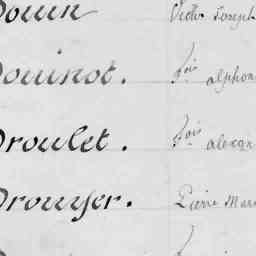 Douin Victor Joseph
Douinot. fois alphon
Droulet. fois alexan
Drouyer. Pierre Mari